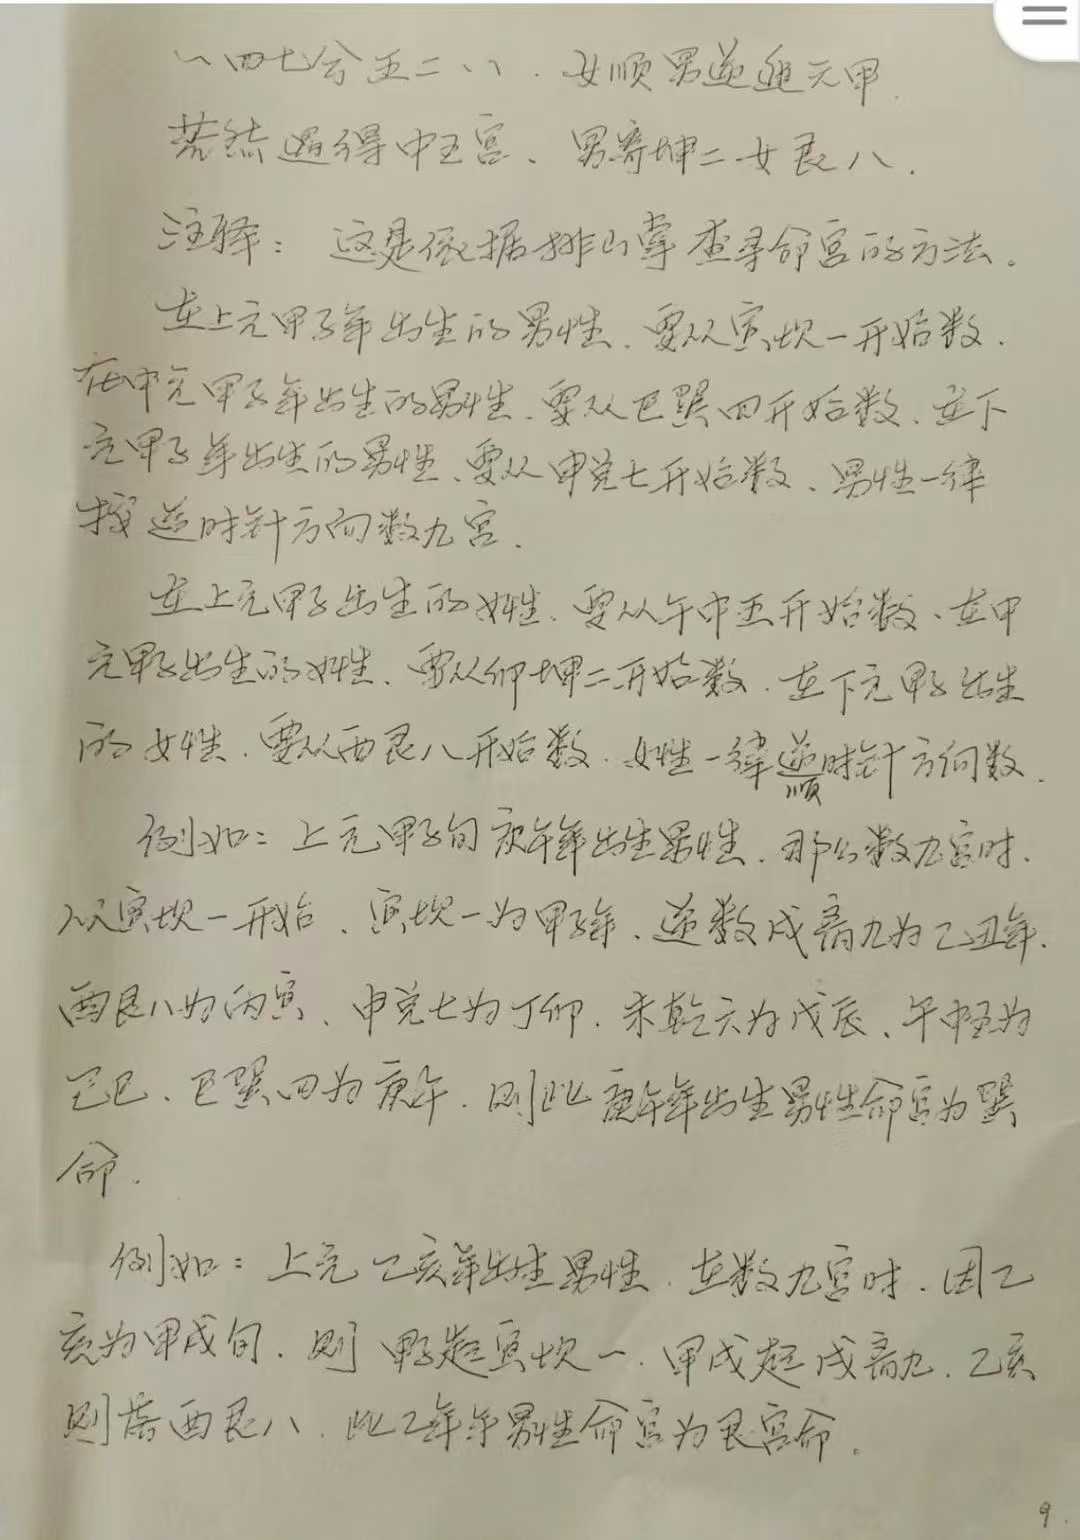 一四七分五二八．女顺男逆进元甲．
若然遇得中五宫、男寄坤二女艮八．
注释：这是依据排山掌查寻命宫的方法。
在上元甲子年出生的男性、要从寅坎一开始数．
在中元甲子年出生的男性、要从巳巽四开始数、在下
元甲子年出生的男性、要从申兑七开始数、男性一律
按逆时针方向数九宫．
在上元甲子出生的女性、要从午中五开始数、在中
元甲子出生的女性、要从卯坤二开始数．在下元甲子出生
的女性、要从酉艮八开始数．女性一律逆时针方向数．
顺
例如：上元甲子旬庚午年出生男性、那么数九宫时．
从寅坎一开始、寅坎一为甲子年、逆数戌离九为乙丑年．
酉艮八为丙寅、申兑七为丁卯．未乾六为戊辰、午中五为
己巳、巳巽四为庚午．则此庚午年出生男性命宫为巽
命．
例如：上元乙亥年出生男性．在数九宫时．因乙
亥为甲戌旬．则甲子起寅坎一．甲戌起戌离九．乙亥
则落酉艮八．此乙年男性命宫为艮宫命．
9．